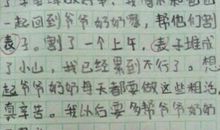 一起回到爷爷奶奶家，帮他们割
麦子。割了一个上午，麦子堆成
了小山，我已经累到不行了。想
起爷爷奶奶每天都要做这些粗活，
真辛苦。我以后要多帮爷爷奶奶